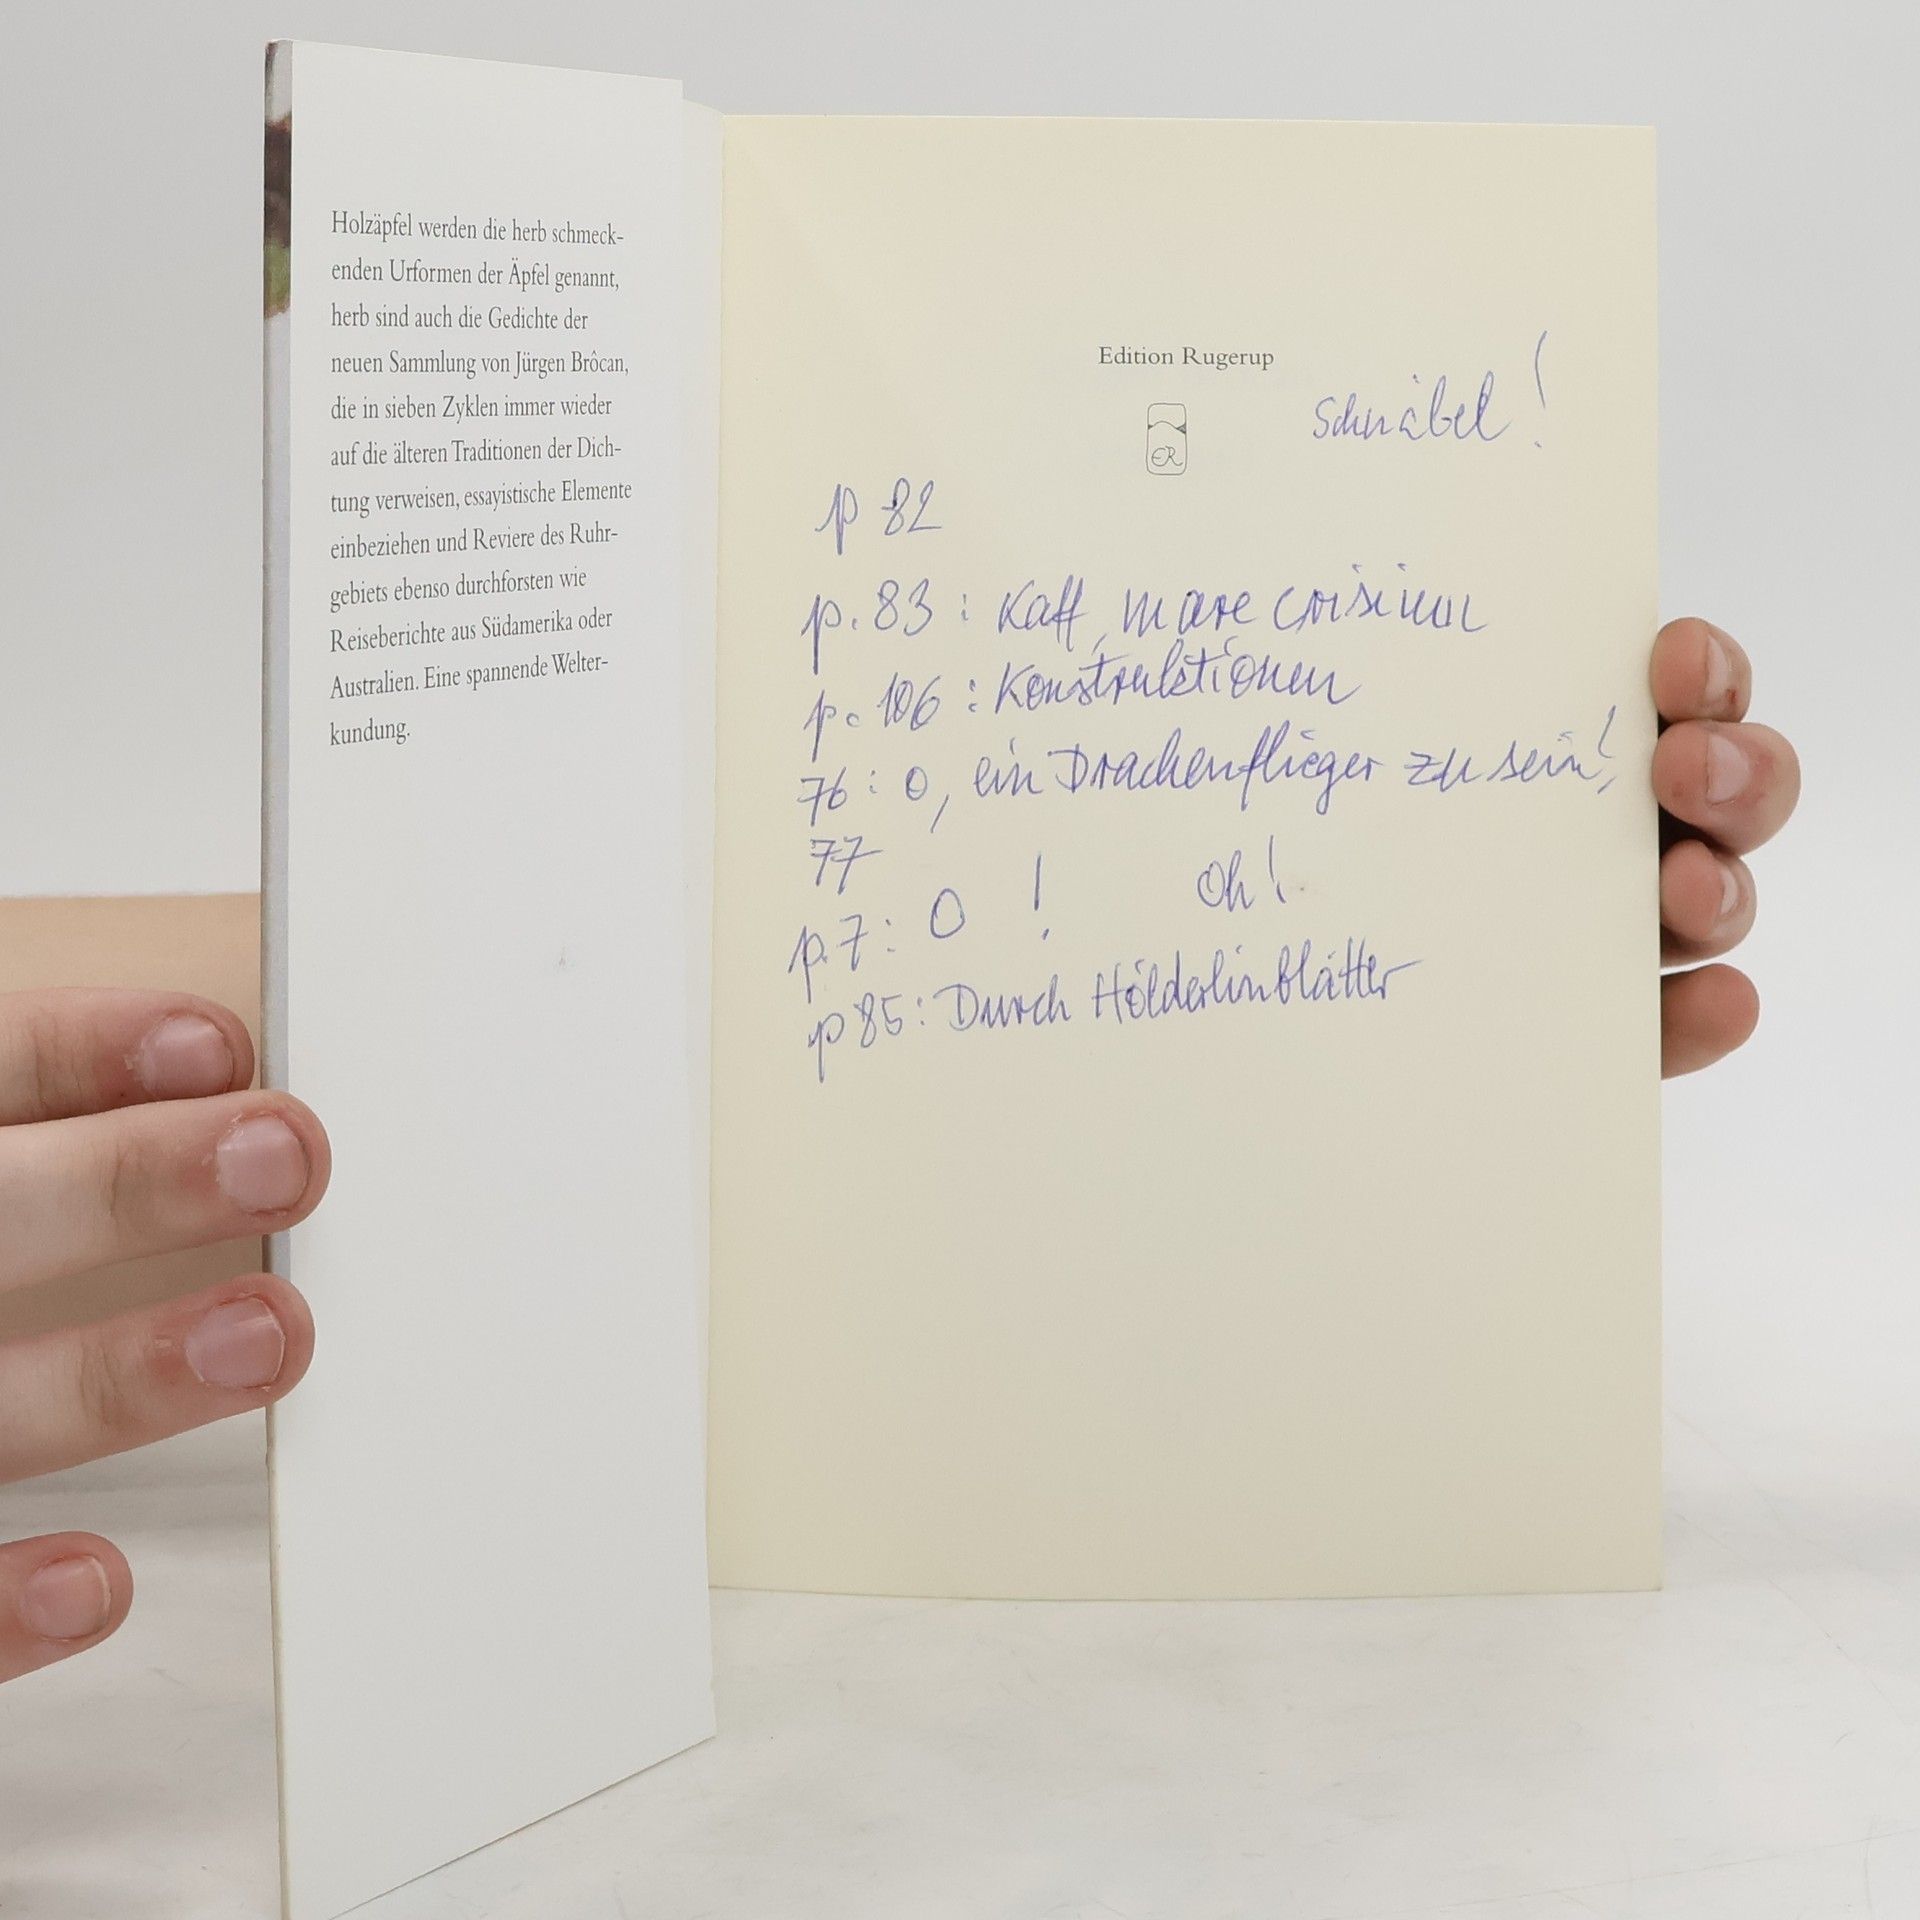 Holzäpfel werden die herb schmeck-
enden Urformen der Äpfel genannt,
herb sind auch die Gedichte der
neuen Sammlung von Jürgen Brôcan,
die in sieben Zyklen immer wieder
auf die älteren Traditionen der Dich-
tung verweisen, essayistische Elemente
einbeziehen und Reviere des Ruhr-
gebiets ebenso durchforsten wie
Reiseberichte aus Südamerika oder
Australien. Eine spannende Welter-
kundung.
Edition Rugerup
ER
Schnäbel!
p 82
p. 83: Kaff, mare crisium
p. 106: Konstruktionen
76: O, ein Drachenflieger zu sein!
77
p. 7: O ! Oh!
p 85: Durch Hölderlinblätter